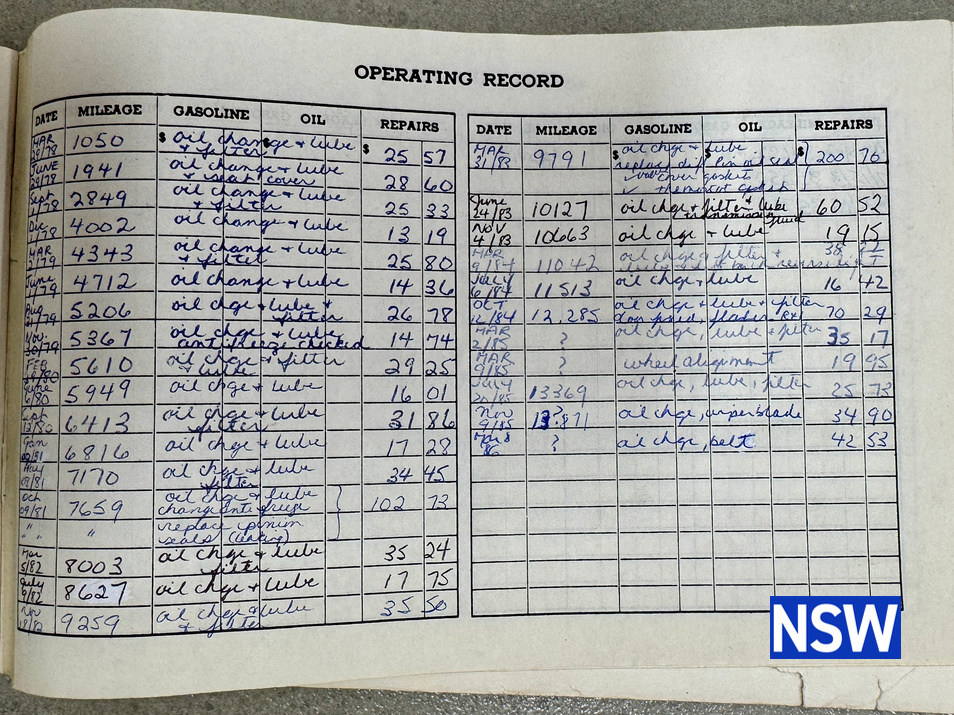 OPERATING RECORD
DATE MILEAGE GASOLINE OIL REPAIRS
MAR 29/78 1050 $ oil change + lube $ 25 57
+ filter
JUNE 29/78 1941 oil change + lube 28 60
+ seat cover
Sept 1/78 2849 oil change + lube 25 33
+ filter
Dec 1/78 4002 oil change + lube 13 19
MAR 2/79 4343 oil change + lube 25 80
+ filter
June 1/79 4712 oil change + lube 14 36
Aug 31/79 5206 oil chge + lube + 26 78
filter
Nov 30/79 5367 oil change + lube 14 74
antifreeze checked
FEB 5610 oil chge + filter 29 25
+ lube
June 6/80 5949 oil chge + lube 16 01
Sept 13/80 6413 oil chge + lube 31 86
filter
Jan 6816 oil chge + lube 17 28
May 7170 oil chge + lube 34 45
filter
Oct 09/81 7659 oil chge + lube 102 73
change anti freeze
" " " replace pinion
seals
Mar 5/82 8003 oil chge + lube 35 24
filter
July 9/82 8627 oil chge + lube 17 75
Nov 9259 oil chge + lube 35 50
+ filter
DATE MILEAGE GASOLINE OIL REPAIRS
MAR 31/83 9791 $ oil chge + $ lube $ 200 76
replace dif. Pin oil seal
✓ cover gasket
✓ thermostat gasket
June 24/83 10127 oil chge + filter + lube 60 52
transmission fluid
NOV 4/83 10663 oil chge + lube 19 15
MAR 9/84 11042 oil chge + filter + 38 22
July 6/84 11513 oil chge + lube 16 42
OCT 12/84 12,285 oil chge + lube + filter 70 29
MAR 2/85 ? oil chge, lube + filter 35 17
MAR 9/85 ? wheel alignment 19 95
July 20/85 13369 oil chge, lube, filter 25 73
Nov 9/85 13?871 oil chge, wiperblade 34 90
Mar 8 86 ? oil chge, belt 42 53
NSW